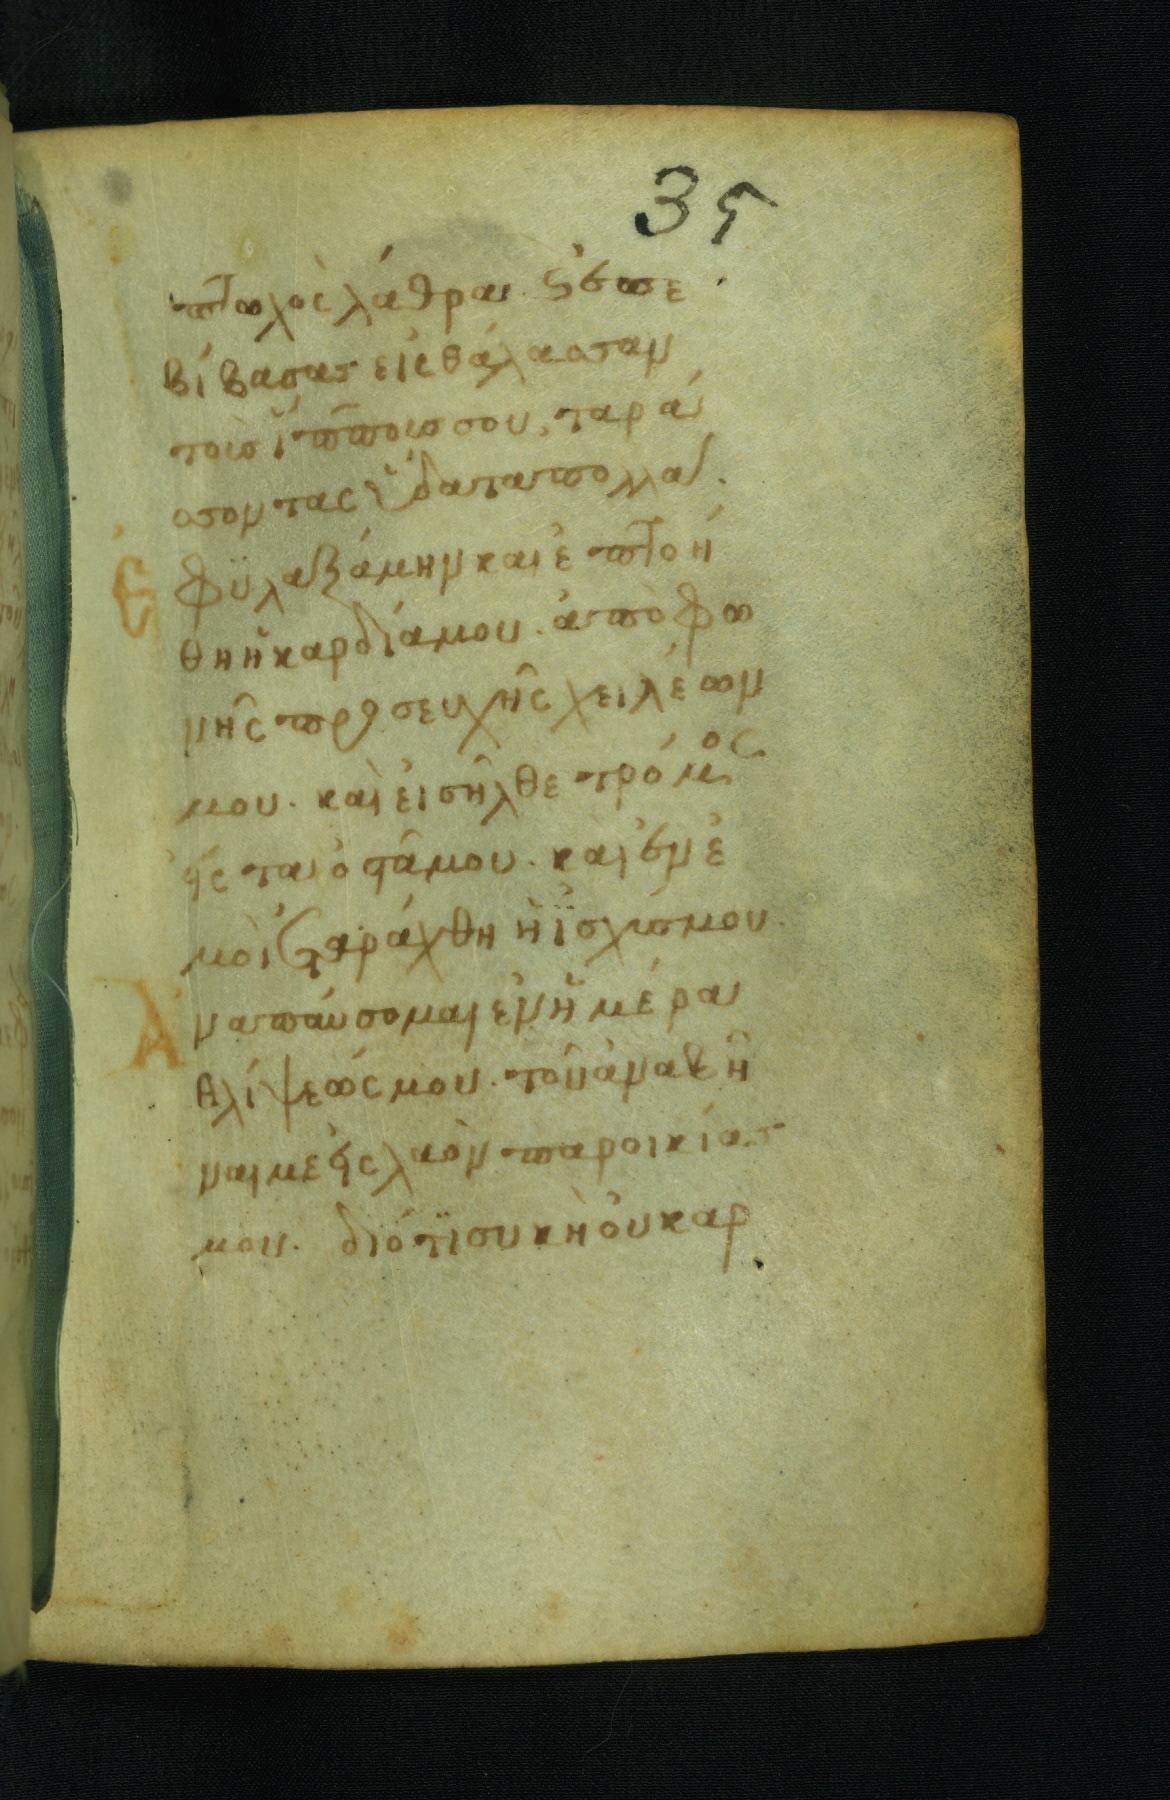 35
πτωχὸς λάθραι. ἐπε
βίβασας εἰς θάλασσαν
τοὺς ἵππους σου, ταρά
σσοντας ὕδατα πολλά.
Ἐ φϋλαξάμην καὶ ἐπτοή
θη ἡ καρδία μου. ἀπὸ φω
νῆς προσευχῆς χειλέων
μου. καὶ εἰσῆλθε τρόμος
εἰς τὰ ὀστᾶ μου. καὶ ἐπ ἐ
μοὶ ἐταράχθη ἡ ἰσχύς μου.
Ἀ ναπαύσομαι ἐν ἡμέραι
θλίψεώς μου. τοῦ ἀναβῆ
ναι με εἰς λαὸν παροικίας
μου. διότϊ συκῆ οὐ καρ